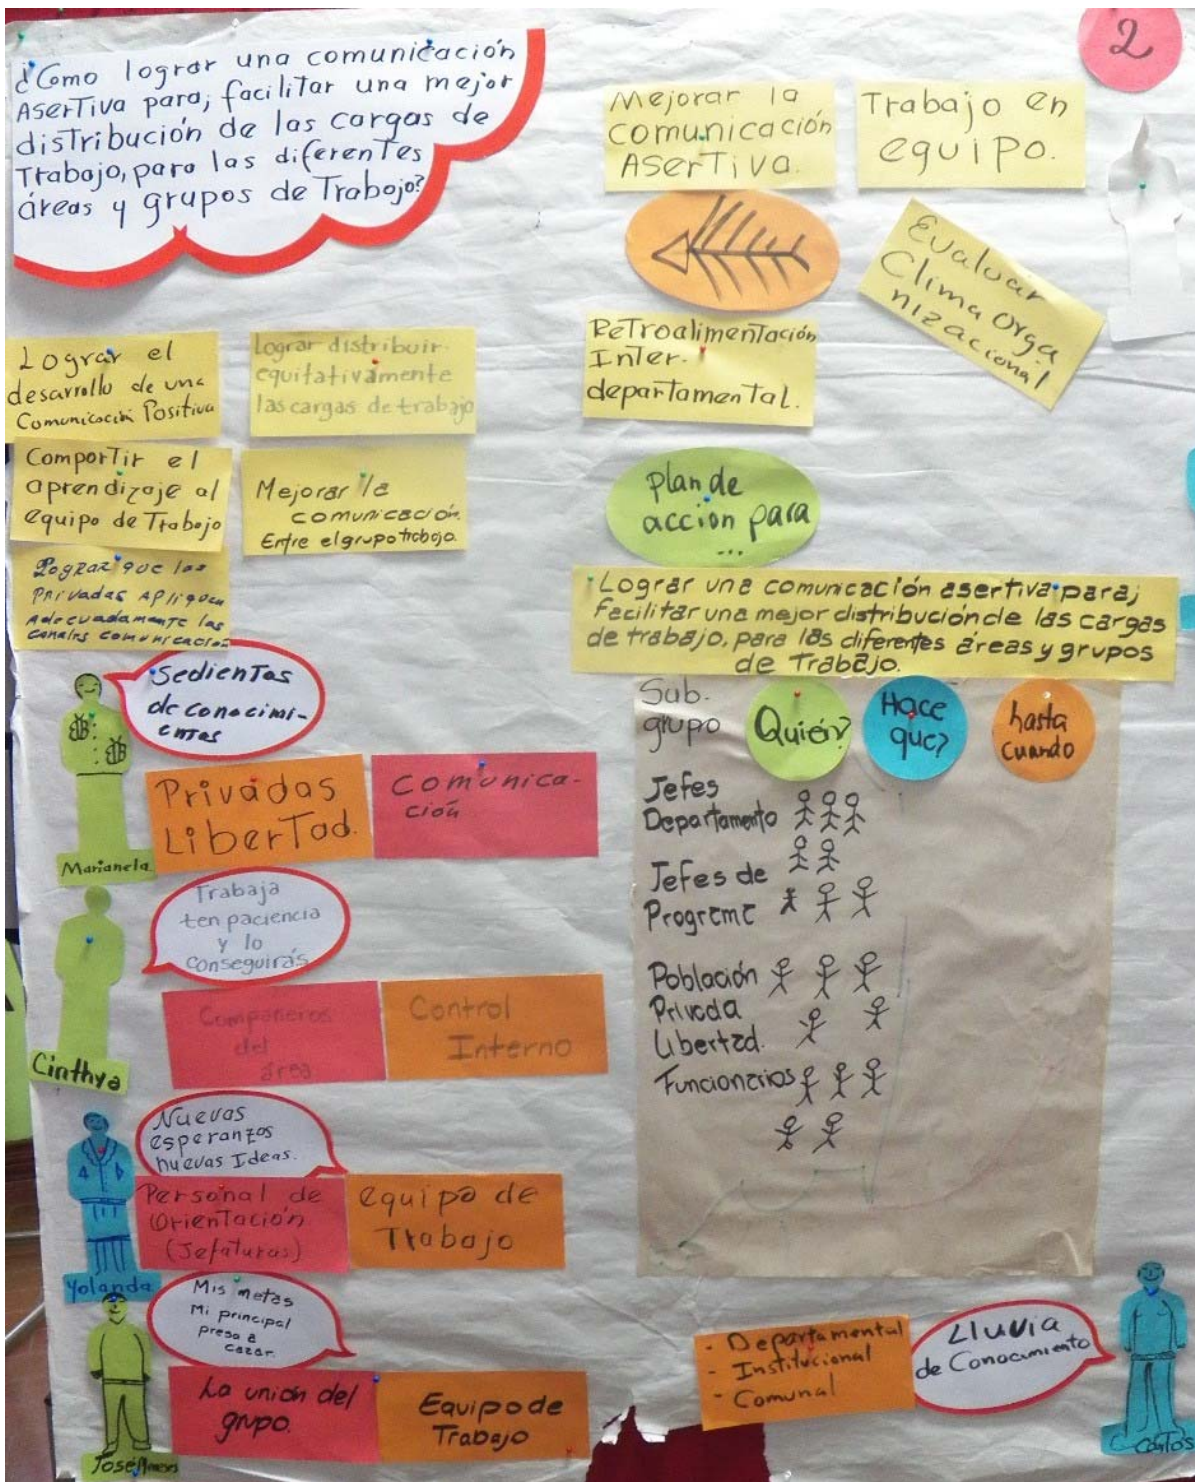 ¿Como lograr una comunicación
AserTiva para; faciliTar una mejor
disTribución de las cargas de
Trabajo, para las diferenTes
áreas y grupos de Trabajo?
2
Mejorar la
comunicación
AserTiva.
Trabajo en
equipo.
Evaluar
Clima Orga
nizacional
ReTroalimenTación
Inter.
deparTamenTal.
Lograr el
desarrollo de una
Comunicación Positiva
Lograr distribuir
equitativamente
las cargas de trabajo
ComparTir el
aprendizaje al
equipo de Trabajo
Mejorar la
comunicación
Entre el grupo trabajo.
Lograr que las
Privadas Apliquen
Adecuadamente los
canales comunicación
plan de
accion para
...
Lograr una comunicación asertiva para;
Facilitar una mejor distribución de las cargas
de trabajo, para las diferentes áreas y grupos
de Trabajo.
Sub.
grupo
Quién?
Hace
que?
hasta
cuando
Jefes
Departamento
Jefes de
Programa
Población
Privada
Libertad.
Funcionarios
SedienTas
de conocimi-
entos
Privadas
LiberTad.
Comunica-
ción
Marianela
Trabaja
ten paciencia
y lo
conseguirás
Compañeros
del
área
Control
Interno
Cinthya
Nuevas
esperanzas
nuevas Ideas.
Personal de
OrienTación
(Jefaturas)
equipo de
Trabajo
Yolanda
Mis metas
Mi principal
presa a
cazar.
La unión del
grupo.
Equipo de
Trabajo
José Meneses
- Departamental
- Institucional
- Comunal
Lluvia
de Conocimiento
Carlos